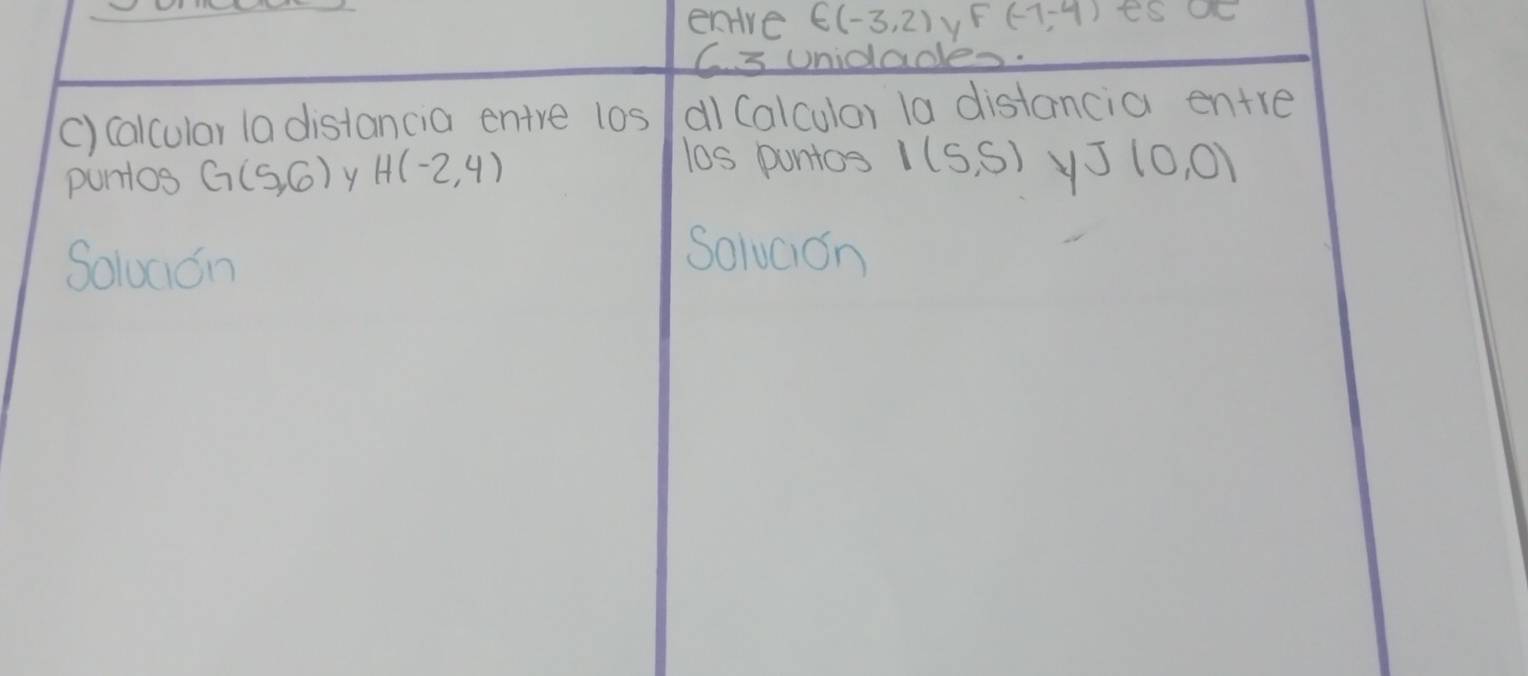 entre E(-3,2) y F(-1,-4) es de
6.3 unidades.
c) Calcular la distancia entre los
puntos G(5,6) y H(-2,4)
Solución
d) Calcular la distancia entre
los puntos I(5,5) y J(0,0)
Solución